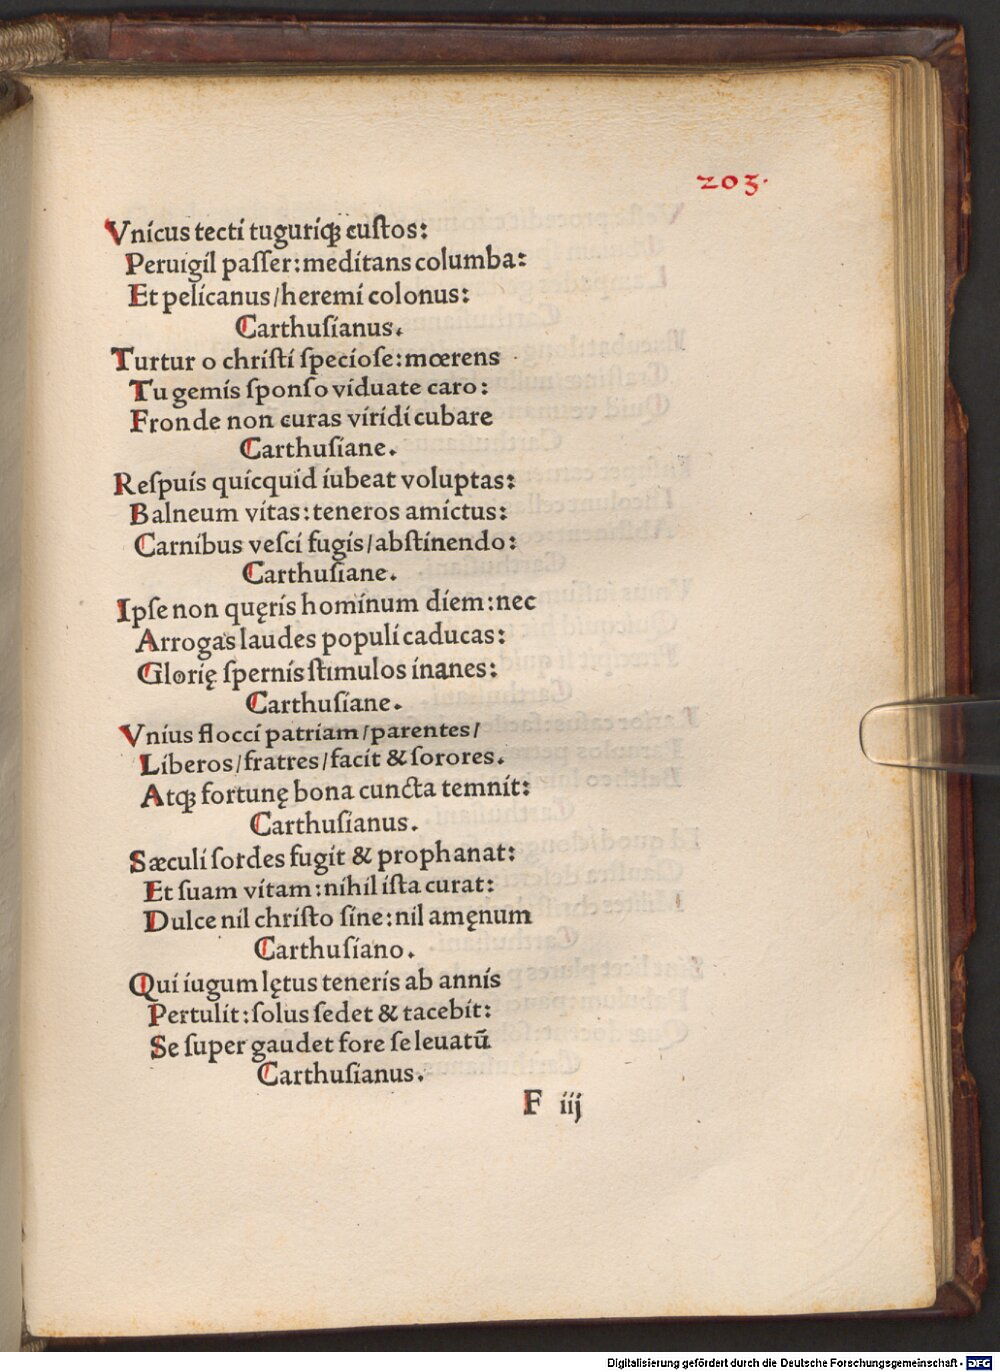 203.
Vnicus tecti tuguriqꝫ custos:
Peruigil paſſer: meditans columba:
Et pelicanus/ heremi colonus:
Carthuſianus.
Turtur o chriſti ſpecioſe: mœrens
Tu gemis ſponſo viduate caro:
Fronde non curas viridi cubare
Carthuſiane.
Reſpuis quicquid iubeat voluptas:
Balneum vitas: teneros amictus:
Carnibus veſci fugis/ abſtinendo:
Carthuſiane.
Ipſe non quęris hominum diem: nec
Arrogas laudes populi caducas:
Glorię ſpernis ſtimulos inanes:
Carthuſiane.
Vnius flocci patriam/ parentes/
Liberos/ fratres/ facit & ſorores.
Atqꝫ fortunę bona cuncta temnit:
Carthuſianus.
Sæculi ſordes fugit & prophanat:
Et ſuam vitam: nihil iſta curat:
Dulce nil chriſto ſine: nil amęnum
Carthuſiano.
Qui iugum lętus teneris ab annis
Pertulit: ſolus ſedet & tacebit:
Se ſuper gaudet fore ſe leuatū
Carthuſianus.
F iij
Digitalisierung gefördert durch die Deutsche Forschungsgemeinschaft - DFG